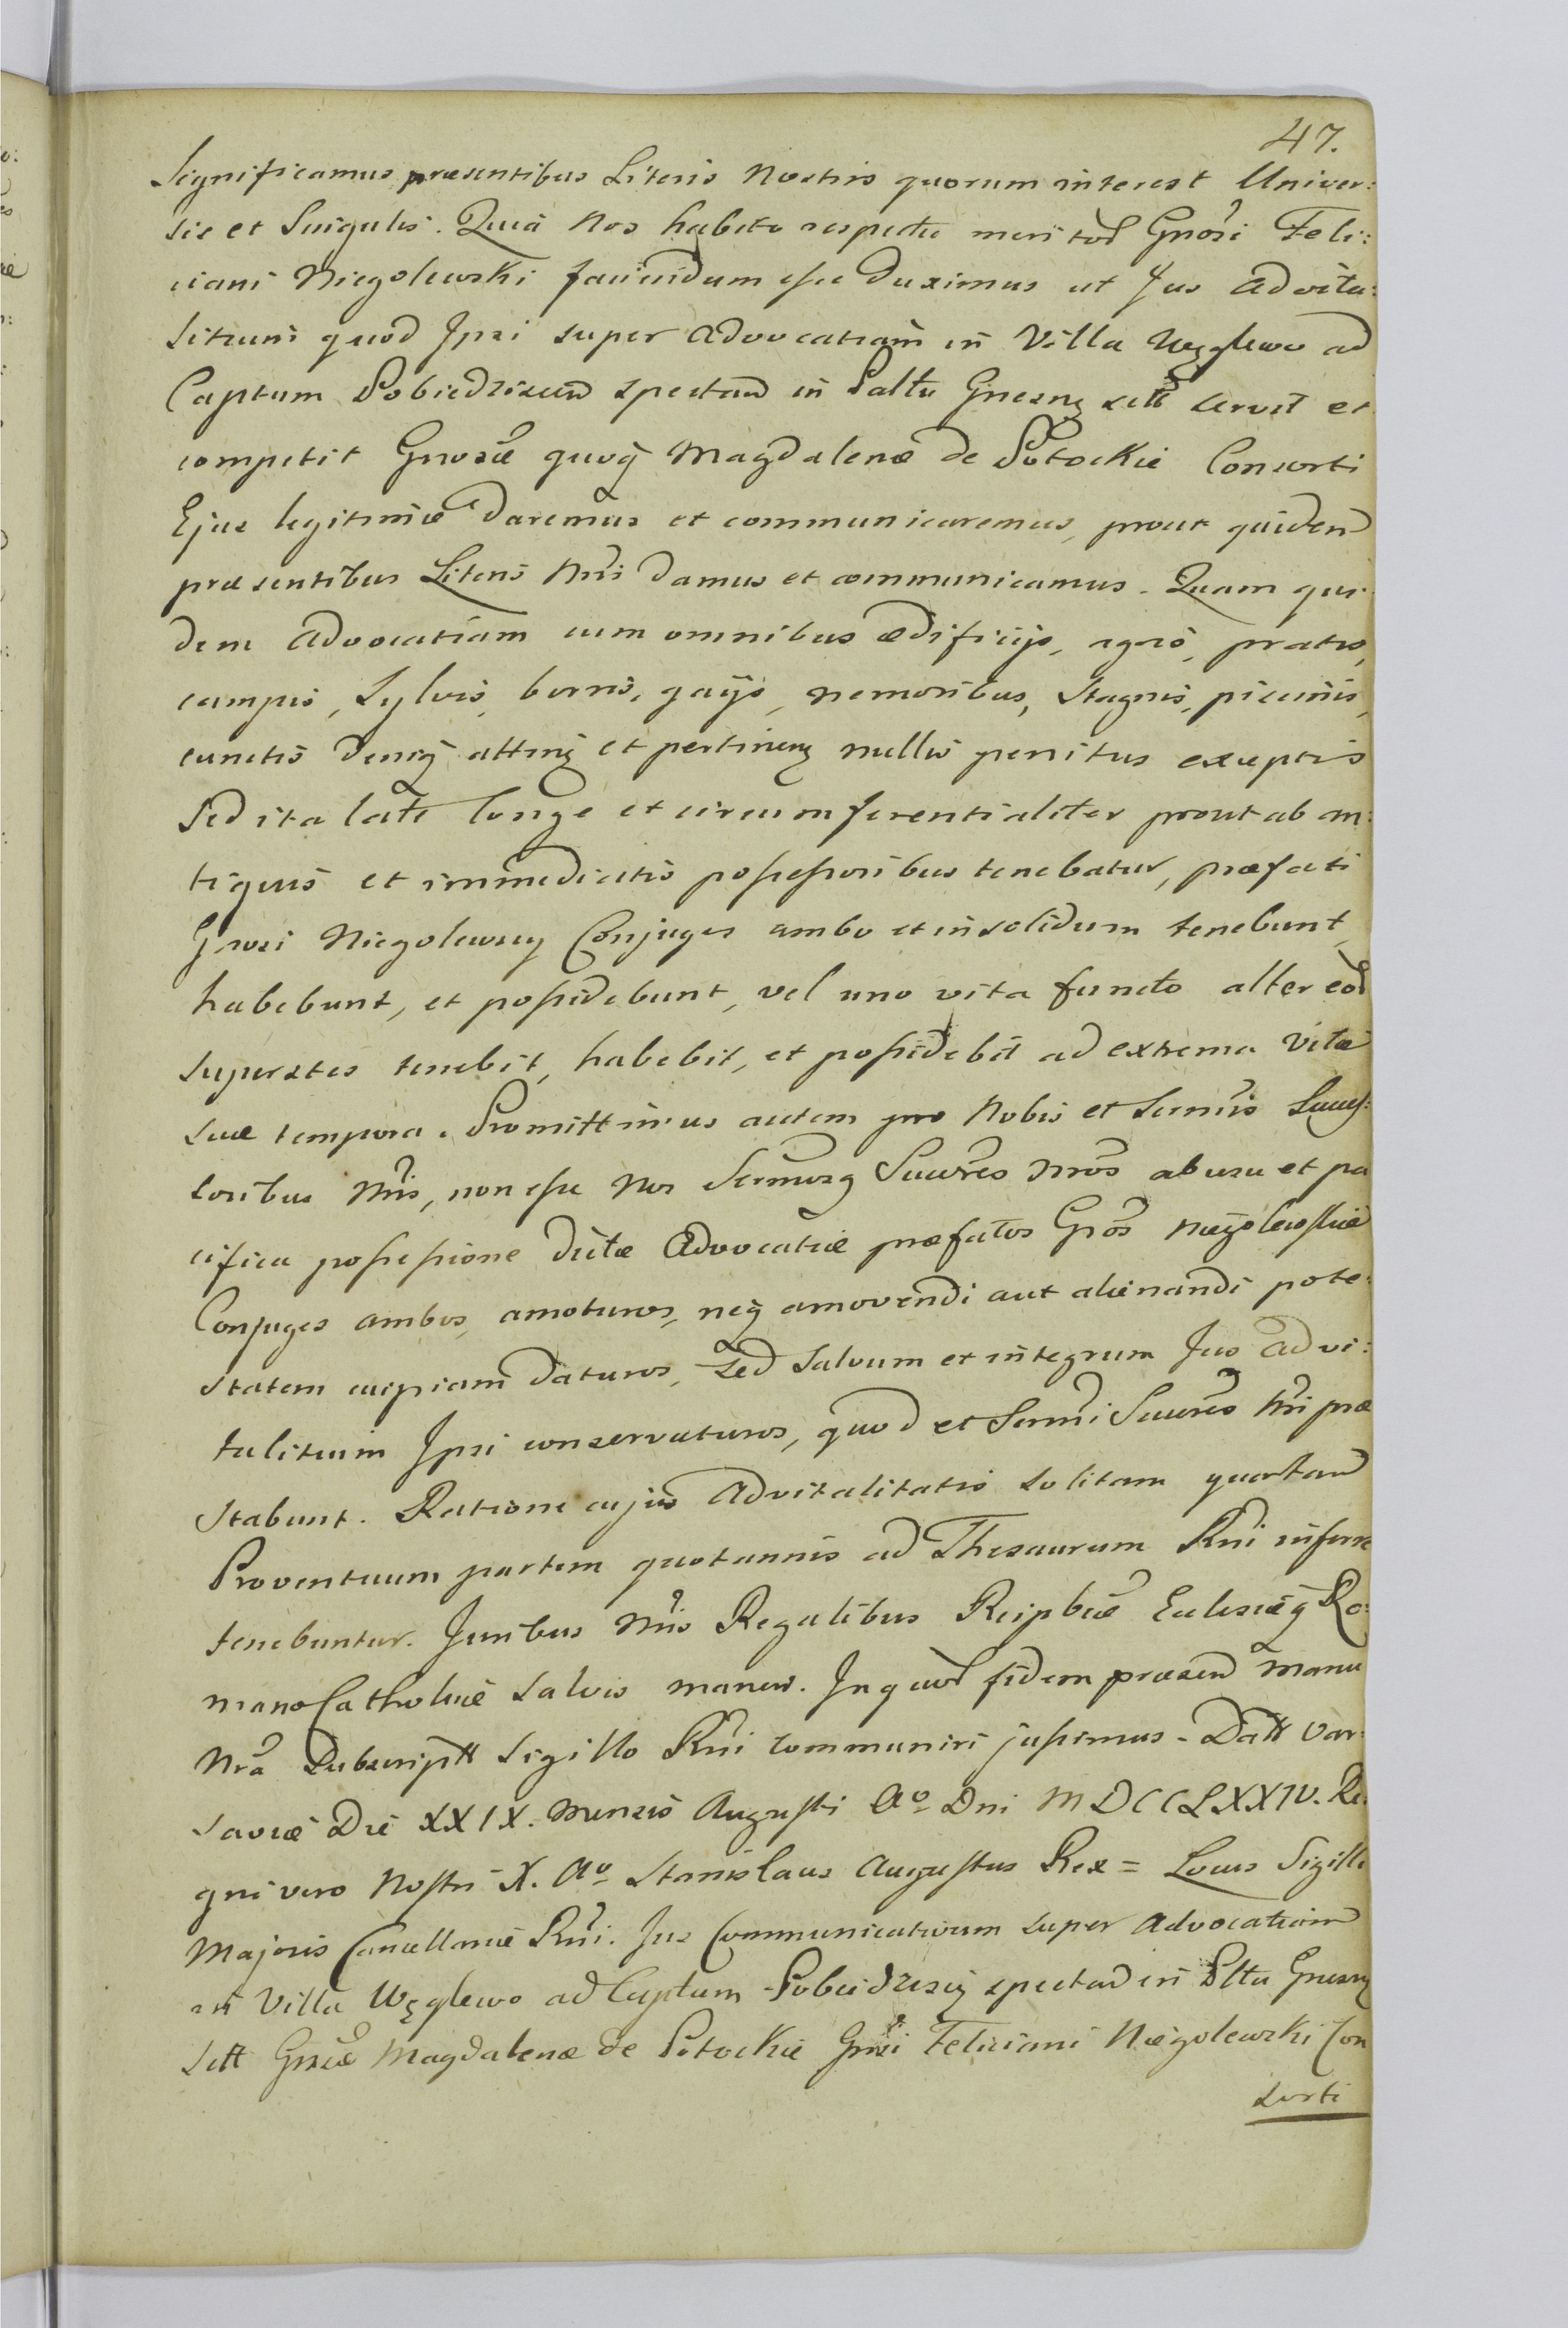 47.
Significamus præsentibus Literis Nostris quorum interest Univer:
sis et Singulis. Quia Nos habito respectu meritor Gnosi Feli:
ciani Niegolewski faciendum esse duximus ut Jus advita:
litium quod Ipsi super Advocatiam in Villa Węglewo ad
Captum Pobiedziscen spectan in Palttu Gnesnẹ sitt servit et
competit Gnosæ quoq Magdalenæ de Potockie Consorti
Ejus legitimæ daremus et communicaremus, prout quidem
præsentibus Literis Nris damus et communicamus. Quam qui
dem Advocatiam cum omnibus ædificijs, agris, pratis,
campis, Sylvis, borris, gaijs, nemoribus, Stagnis, piscinis,
cunctis deniq attinẹ et pertinenẹ nullis penitus exceptis
Sed ita late longe et circumferentialiter prout ab an:
tiquis et immediatis possessoribus tenebatur, præfati
Gnosi Niegolewscy Conjuges ambo et insolidum tenebunt,
habebunt, et possidebunt, vel uno vita functo alter eor
superstes tenebit, habebit, et possidebit ad extrema vitæ
suæ tempora. Promittimus autem pro Nobis et Sermis Succes:
soribus Nris, non esse Nos Sermosq Succres Nros ab usu et pa
cifica possessione dictæ Advocatiæ præfatos Gnos Niegolewskie
Conjuges ambos, amoturos, neq amovendi aut alienandi pote:
statem cuipiam daturos, sed salvum et integrum Jus advi:
talitium Ipsi conservaturos, quod et Sermi Succres Nri præ
stabunt. Ratione cujus Advitalitatis solitam quartam
Proventuum partem quotannis ad Thesaurum Rni inferre
tenebuntur. Juribus Nris Regalibus Reipbcæ Eclesiæq Ro:
mano Catholicæ salvis manen. In quor fidem præsen manu
Nra Subscriptt Sigillo Rni communiri jussimus. Datt Var:
saviæ Die XXIX. Mensis Augusti Ao Dni MDCCLXXIV. Re:
gni vero Nostri X. Ao Stanislaus Augustus Rex = Locus Sigilli
Majoris Cancellariæ Rni. Jus Communicativum super Advocatiam
in Villa Węglewo ad Captum Pobiedziscẹ spectan in Plttu Gnesnẹ
sitt Gnosæ Magdalenæ de Potockie Gnosi Feliciani Niegolewski Con
sorti